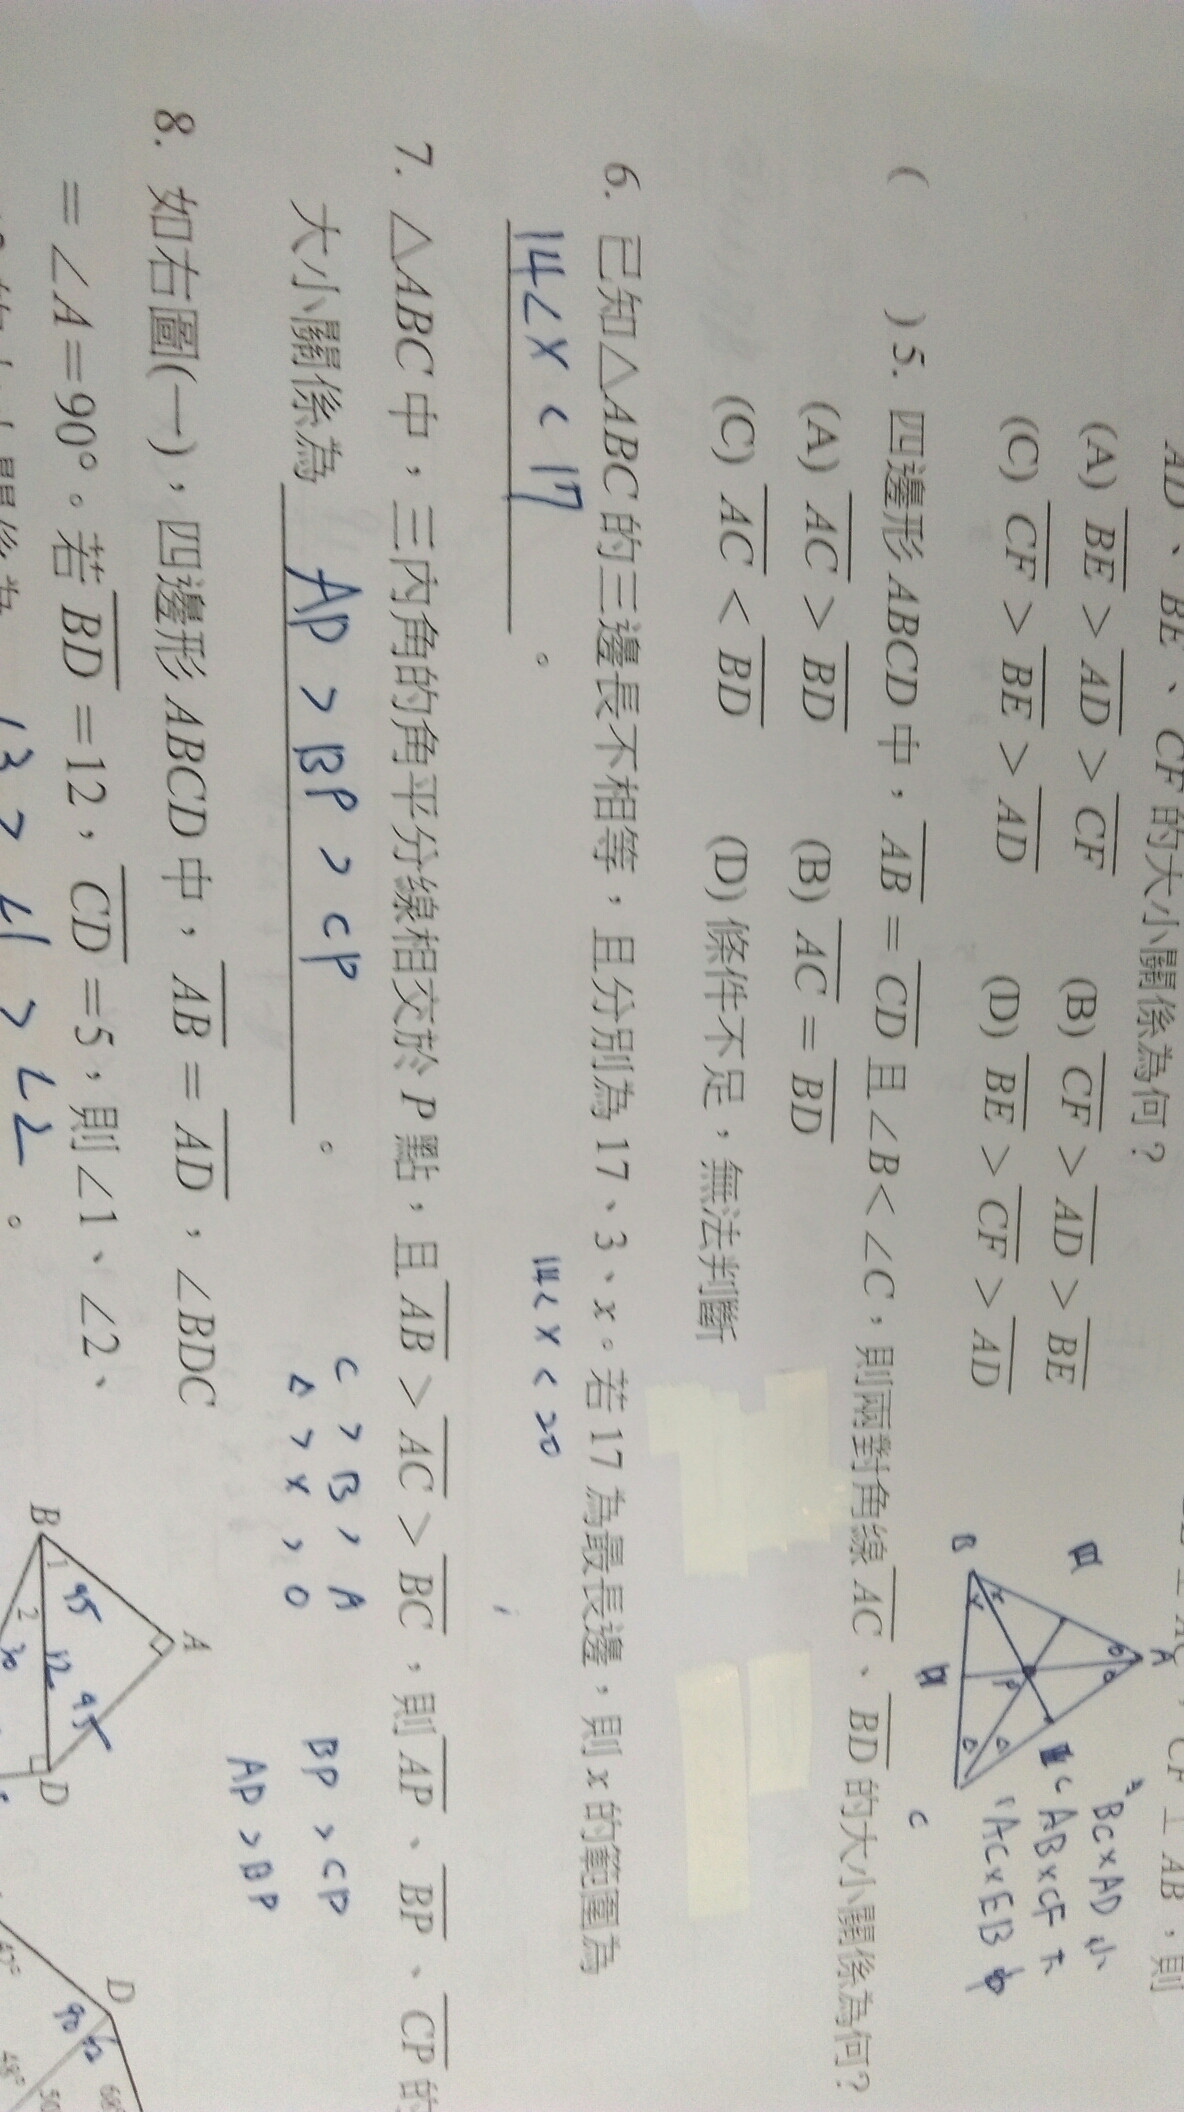 AD、BE、CF的大小關係為何?
(A) BE > AD > CF
(B) CF > AD > BE
(C) CF > BE > AD
(D) BE > CF > AD
( )5. 四邊形ABCD中，AB=CD且∠B<∠C，則兩對角線AC、BD的大小關係為何?
(A) AC > BD
(B) AC = BD
(C) AC < BD
(D) 條件不足，無法判斷
6. 已知△ABC的三邊長不相等，且分別為17、3、x。若17為最長邊，則x的範圍為
14<x<17。
14<x<20
7. △ABC中，三內角的角平分線相交於P點，且AB>AC>BC，則AP、BP、CP的
大小關係為 AP>BP>CP。
C>B>A
△>X>O
BP>CP
AP>BP
8. 如右圖(一)，四邊形ABCD中，AB=AD，∠BDC
=∠A=90°。若BD=12，CD=5，則∠1、∠2、
A
B
C
P
BC×AD 小
AB×CF 大
AC×EB 中
A
B
1
2
45
45
12
30
D
D
90
47°
48°